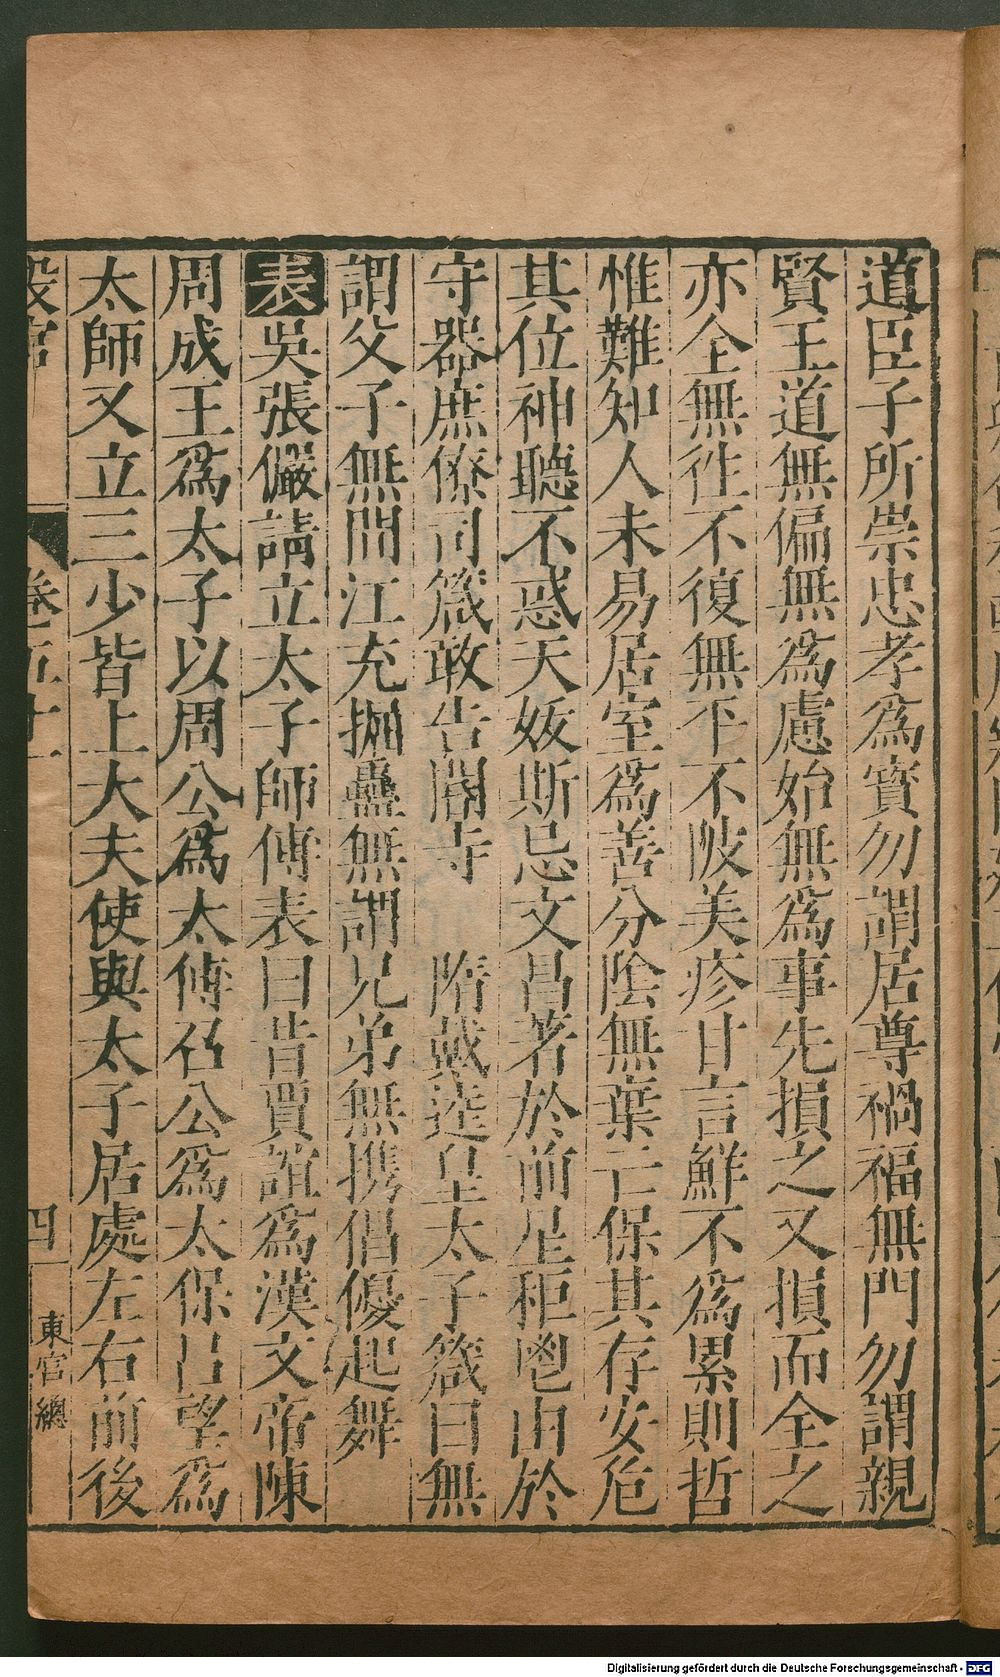 道臣子所崇忠孝爲寶勿謂居尊禍福無門勿謂親
賢王道無偏無爲慮始無爲事先損之又損而全之
亦全無往不復無平不陂美疹甘言鮮不爲累則哲
惟難知人未易居室爲善分陰無棄亡保其存安危
其位神聽不惑天妖斯忌文昌著於前星秬鬯由於
守器庶僚司箴敢告閽寺　隋戴逵皇太子箴曰無
謂父子無間江充掘蠱無謂兄弟無携倡優起舞
表吳張儼請立太子師傅表曰昔賈誼爲漢文帝陳
周成王爲太子以周公爲太傅召公爲太保呂望爲
太師又立三少皆上大夫使與太子居處左右前後
設官
卷五十一
四
東宮總
Digitalisierung gefördert durch die Deutsche Forschungsgemeinschaft - DFG